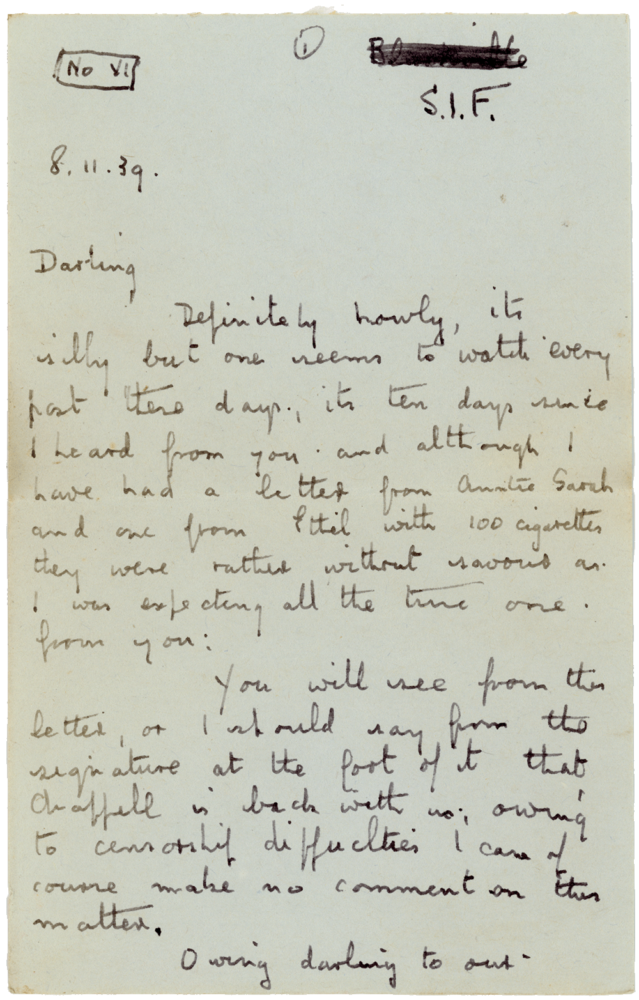 No VI
1
S.I.F.
8.11.39.
Darling
Definitely lowly, its
silly but one seems to watch every
post these days, its ten days since
I heard from you. and although I
have had a letter from Auntie Sarah
and one from Ethel with 100 cigarettes
they were rather without savour as.
I was expecting all the time one.
from you:
You will see from this
letter, or I should say from the
signature at the foot of it that
Chappell is back with us; owing
to censorship difficulties I can of
course make no comment on this
matter.
Owing darling to our